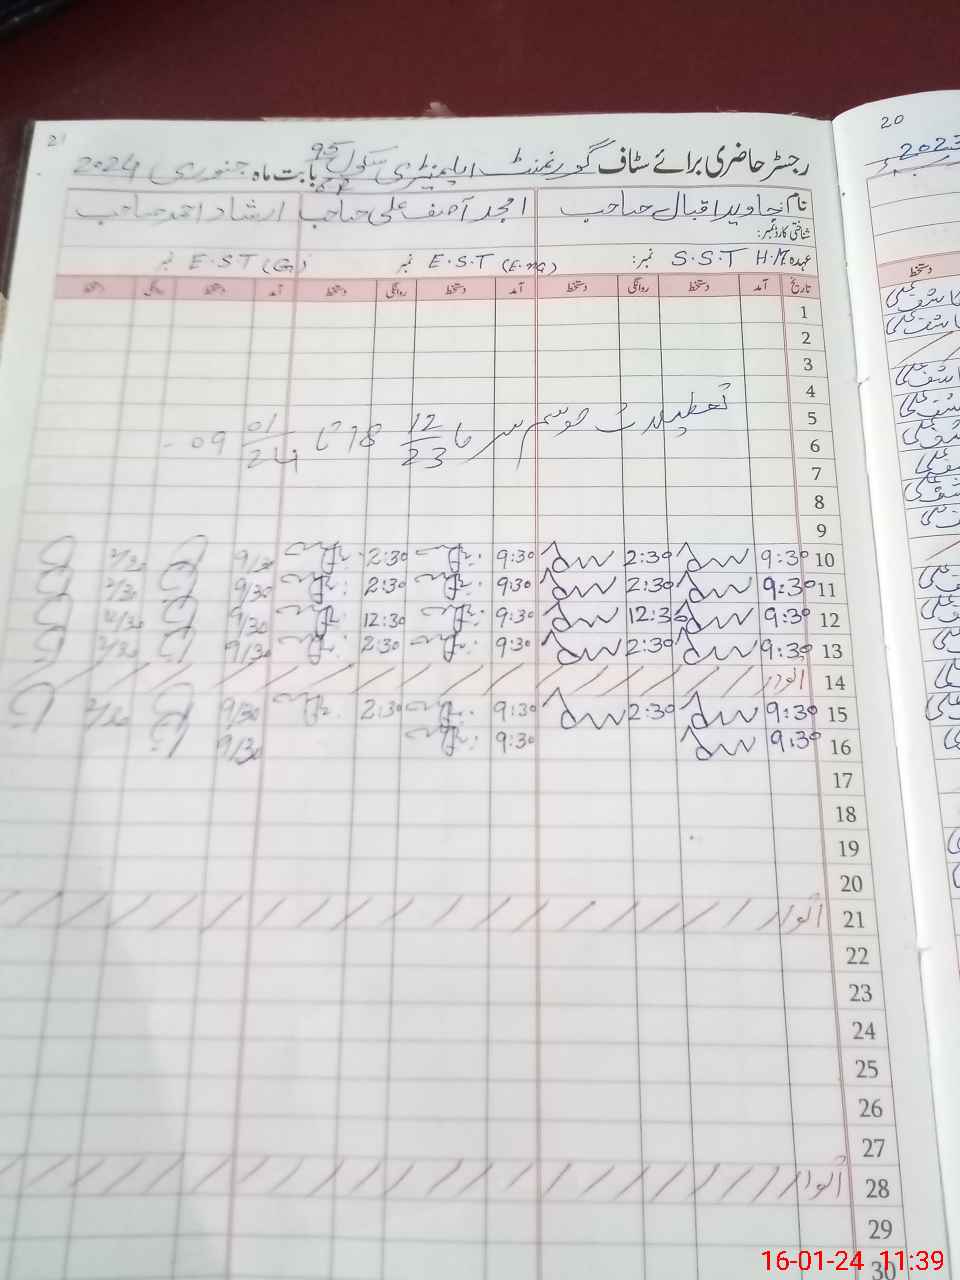 21
رجسٹر حاضری برائے سٹاف گورنمنٹ ایلیمنٹری سکول 95 بابت ماہ جنوری 2024
نام جاوید اقبال صاحب امجد آصف علی صاحب ارشاد احمد صاحب
شناختی کارڈ نمبر:
عہدہ S.S.T H.M نمبر: E.S.T (Eng) نمبر E.S.T (G) نمبر
تاریخ آمد دستخط روانگی دستخط آمد دستخط روانگی دستخط آمد دستخط روانگی دستخط
1
2
3
4
5
تعطیلات موسم سرما 18 12/23 تا 09 01/24
6
7
8
9
10 9:30 2:30 9:30 2:30 9/30 2/30
11 9:30 2:30 9:30 2:30 9/30 2/30
12 9:30 12:30 9:30 12:30 9/30 12/30
13 9:30 2:30 9:30 2:30 9/30 2/30
14 اتوار
15 9:30 2:30 9:30 2:30 9/30 2/30
16 9:30 9:30 9/30
17
18
19
20
21 اتوار
22
23
24
25
26
27
28 اتوار
29
30
20
2023
دستخط
16-01-24 11:39